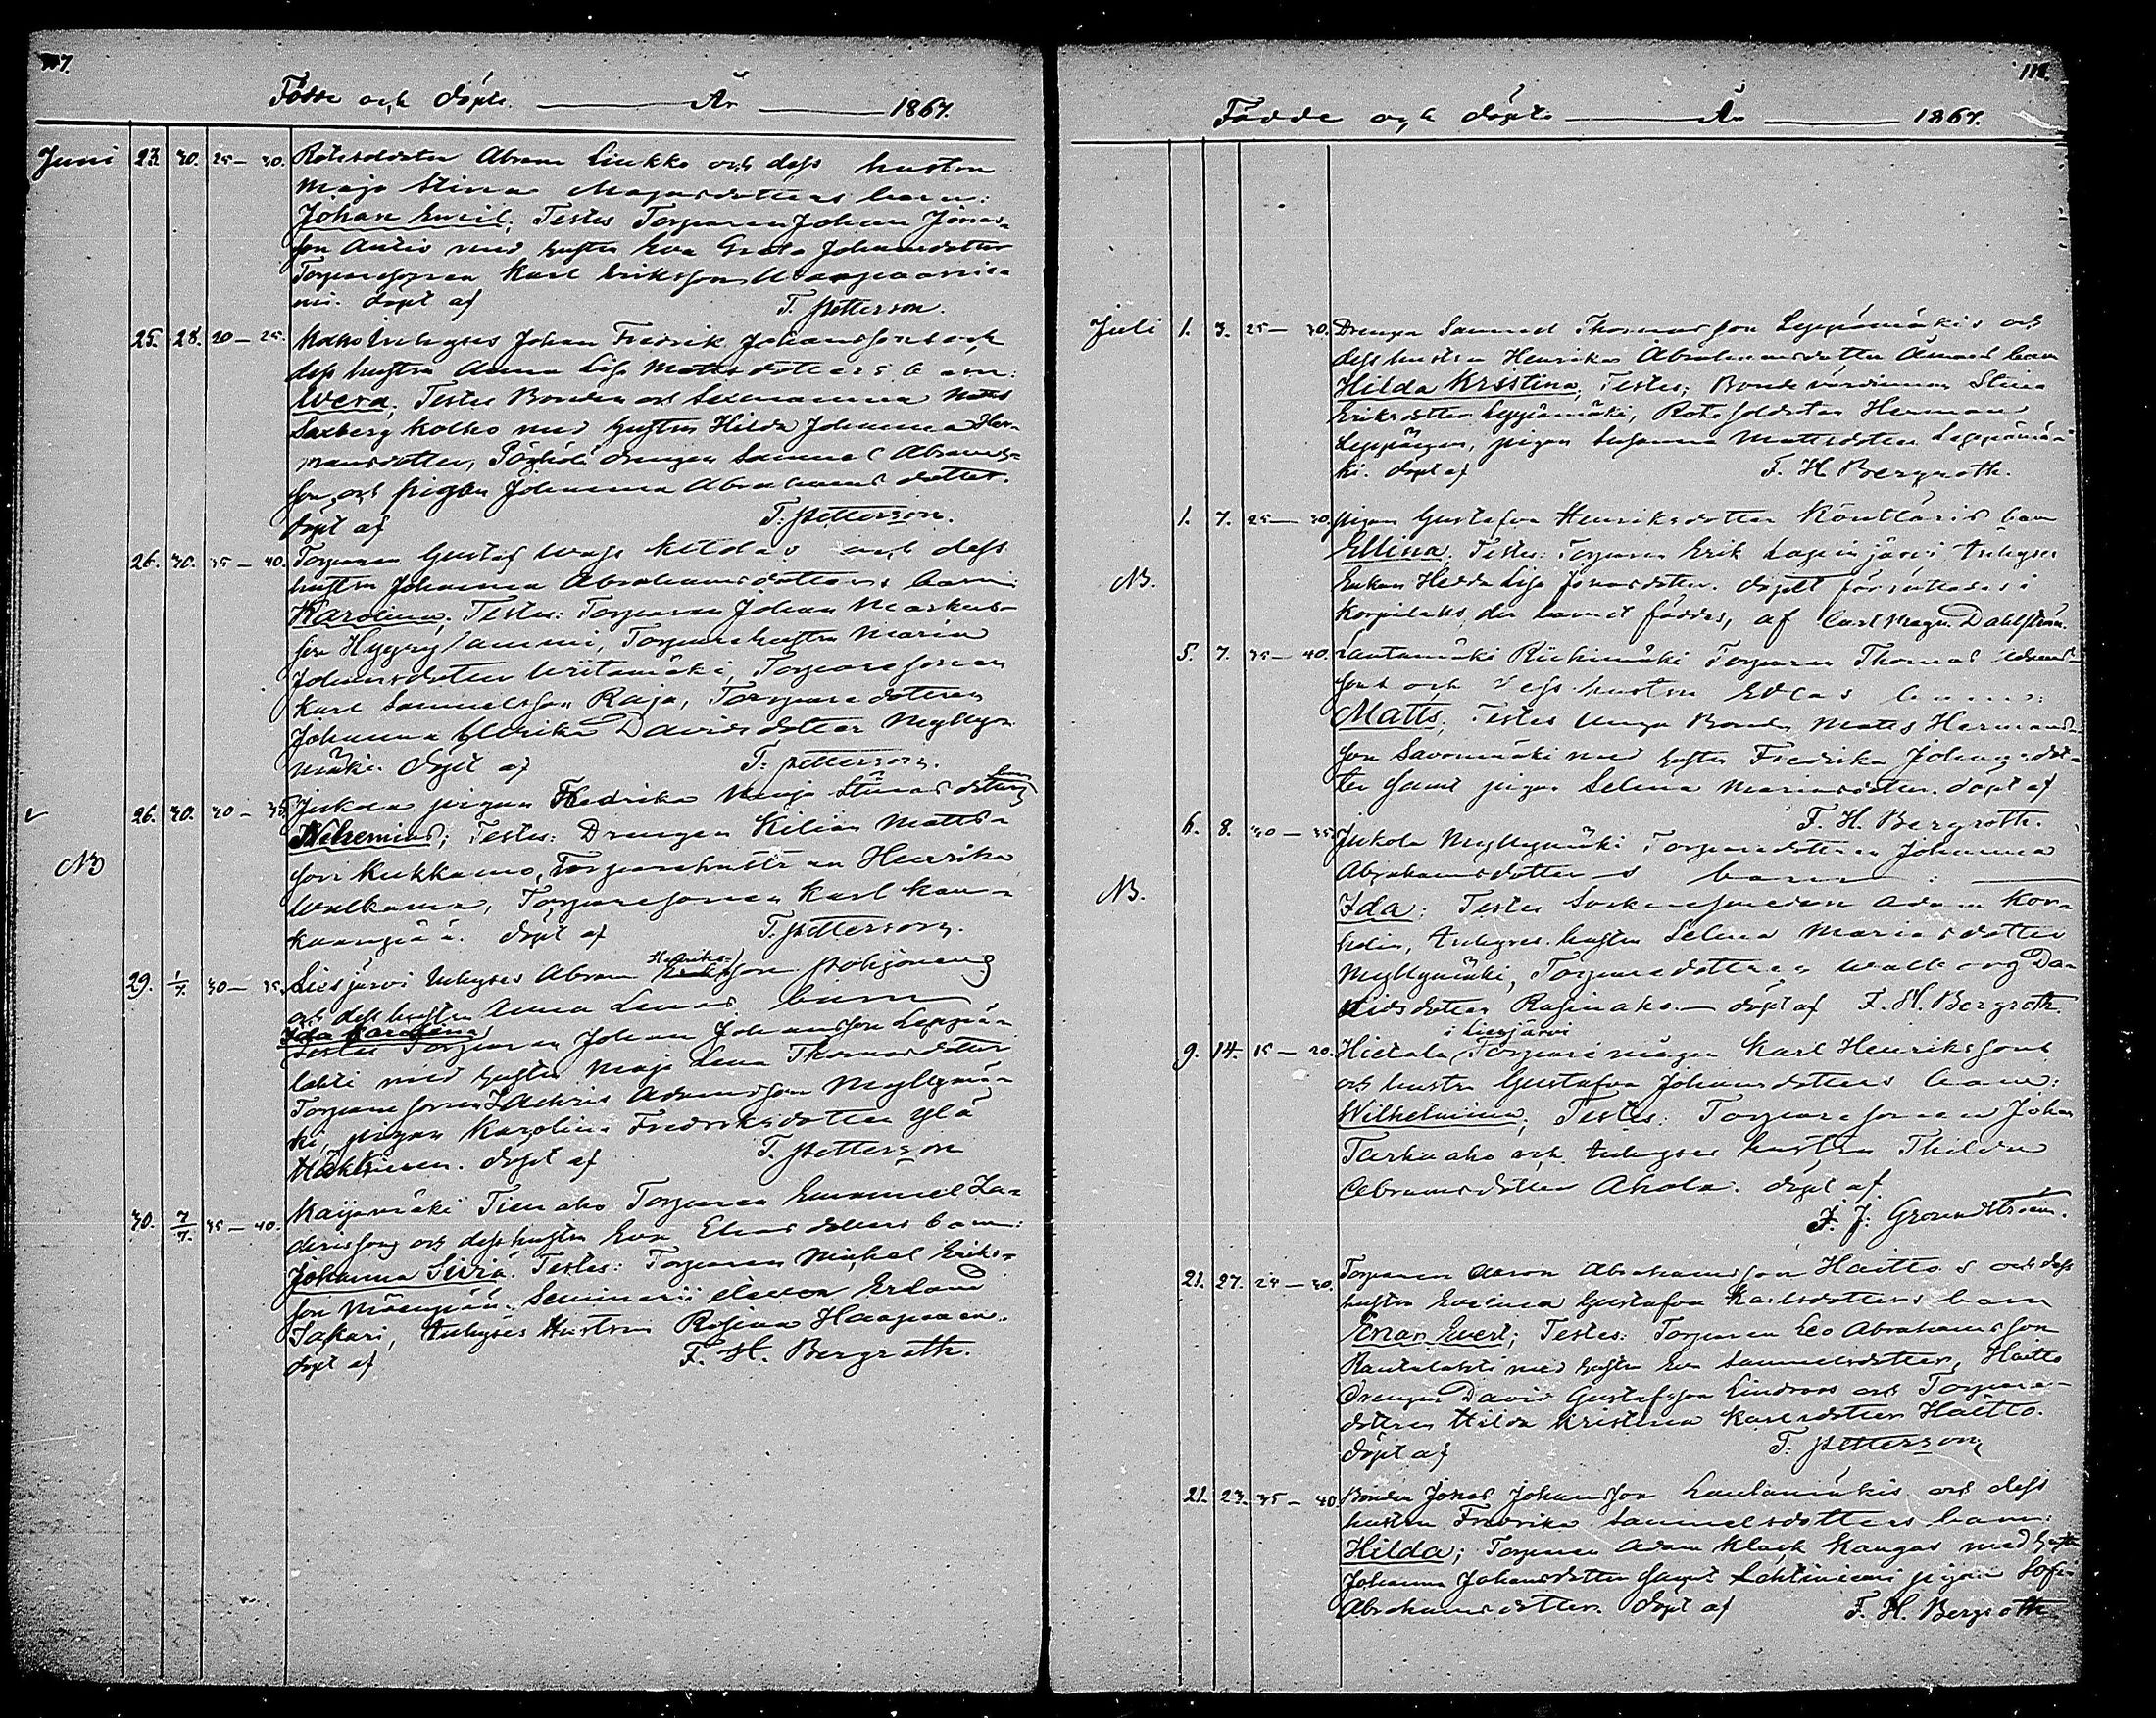 117.
Födde och döpte. År 1867.
Juni 23. 30. 25-30. Rotesoldaten Abram Liukko och dess hustru
Maja Stina Majasdotters barn:
Johan Emeil; Testes Torparen Johan Jonas-
son Autio med hustru Eva Greta Johansdotter
Torparesonen Karl Eriksson
ni. döpt af T. Petterson.
25. 28. 20-25. Kolko Inhyses Johan Fredrik Johanssons och
dess hustru Anna Lisa Mattsdotters barn:
Wera; Testes Bonden och Sexmannen Matts
Saxberg Kolko med hustru Hilda Johanna Her-
mansdotter, drengen Samuel Abrams-
son och pigan Johanna Abrahamsdotter.
döpt af T. Petterson.
26. 30. 35-40. Torparen Gustaf och dess
hustru Johanna Abrahamsdotters barn:
Karolina; Testes: Torparen Johan Markus-
son Hyyrylammi, Torparehustru Maria
Johansdotter Wiitamäki, Torparesonen
Karl Samuelsson Raja, Torparedottren
Johanna Ulrika Davidsdotter Myllys
mäki. Döpt af T. Petterson.
26. 30. 30-35. Jukola pigan Fredrika Maja Stinasdotters barn
Nehemias; Testes: Drengen Kilian Matts-
son Kukkamo, Torparehustrun Henrika
Walkama, Torparesonen Karl Kan-
kaanpää. döpt af T. Petterson.
NB
29. 1/7. 30-35. Liesjärvi Inhyses Abram Henriksson Pohjonens
och dess hustru Anna Lenas barn
Ida Karolina
Testes Torparen Johan Johansson Leppä-
lahti med hustru Maja Lena Thomasdotter
Torparesonen Zachris Adamsson Myllymä-
ki, pigan Karolina Fredriksdotter Ylä
döpt af T. Petterson
30. 7/7. 35-40. Maijanmäki Tienaho Torparen Emanuel Za-
chrissons och dess hustru Eva Eliasdotters barn:
Johanna Siviä. Testes: Torparen Michel Eriks-
son Mäenpää. Seminarii eleven Erland
Sakari, Inhyses Hustrun Rosina Haapanen.
döpt af F. H. Bergroth.
118.
Födde och döpte År 1867.
Juli 1. 3. 25-30. Drengen Samuel Thomasson Leppämäkis och
dess hustru Henrika Abrahamsdotter barn
Hilda Kristina; Testes; Bonde värdinnan Stina
Eriksdotter Leppämäki, Rotesoldaten Herman
Leppänen, pigan Susanna Mattsdotter Leppämä-
ki. döpt af F. H. Bergroth.
1. 7. 25-30. pigan Gustafva Henriksdotter Könttäris barn
Ellina. Testes: Torparen Erik Lapinjärvi, Inhyses
Enkan Hedda Lisa Jonasdotter. döpelt förrättades i
Korpilaks, der barnet föddes, af Carl Magn. Dahlström.
NB.
5. 7. 35-40. Rautamäki Riihimäki Torparen Thomas Adams-
sons och dess hustru Edlas barn:
Matts; Testes Unga Bonden Matts Hermans-
son Savonmäki med hustru Fredrika Johansdot-
ter samt pigan Selma Mariasdotter. döpt af
F. H. Bergroth.
6. 8. 30-35. Jukola Myllymäki Torparedottren Johanna
Abrahamsdotters barn:
NB.
Ida: Testes Sockensmeden Adam Kor-
helin, Inhyses hustru Selma Mariasdotter
Myllymäki, Torparedottren Walborg Da-
vidsdotter Rusinaho. döpt af F. H. Bergroth.
9. 14. 15-20. Hietala i Liesjärvi Torparemågen Karl Henrikssons
och hustru Gustafva Johansdotters barn:
Wilhelmina; Testes: Torparesonen Johan
Tarkaaho och Inhyses hustru Thilda
Abramsdotter Ahola. döpt af
F. J. Grönström.
21. 27. 24-30. Torparen Aaron Abrahamsson Haittos och dess
hustru Evelina Gustafva Karlsdotters barn
Enar Evert; Testes: Torparen Leo Abrahamsson
Rantalahti med hustru Eva Samuelsdotter, Haitto
Drengen David Gustafsson Lindroos och Torpare-
dottren Hilda Kristina Karlsdotter Haitto.
döpt af T. Petterson
21. 23. 35-40 Bonden Jonas Johansson Lautamäkis och dess
hustru Fredrika Samuelsdotters barn:
Hilda; Torparen Adam Klack Kangas med hustru
Johanna Johansdotter samt Lehtiniemi pigan Sofi-
Abrahamsdotter. Döpt af F. H. Bergroth